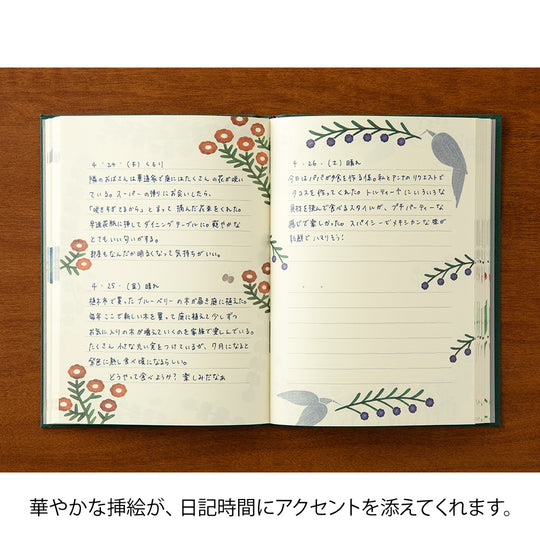 4・24・(木) くもり
隣のおばさんは華道家で庭にはたくさんの花が咲い
ている。スーパーの帰りにお会いしたら、
「咲きすぎてるから」とまって 摘んだ花束をくれた。
早速花瓶に挿してダイニングテーブルに。鮮やかな
とてもいい匂いがする。
部屋もなんだか明るくなって気持ちがいい。
4・25・(金) 晴れ
植木市で買ったブルーベリーの木が届き庭に植えた。
毎年ここで新しい木を買って庭に植えて少しずつ
お気に入りの木が増えていくのを家族で楽しんでいる。
たくさん 小さな丸い実をつけているが、7月になると
紫色に熟し食べ頃になるらしい。
どうやって食べようか? 楽しみだなぁ
4・26・(土) 晴れ
今日はパパが夕食を作る係。私とアンナのリクエストで
タコスを作ってくれた。トルティーヤにいろいろな
具材を挟んで食べるスタイルが、プチパーティーな
感じで楽しかった。スパイシーでメキシカンな味が
新鮮で ハマりそう!
華やかな挿絵が、日記時間にアクセントを添えてくれます。